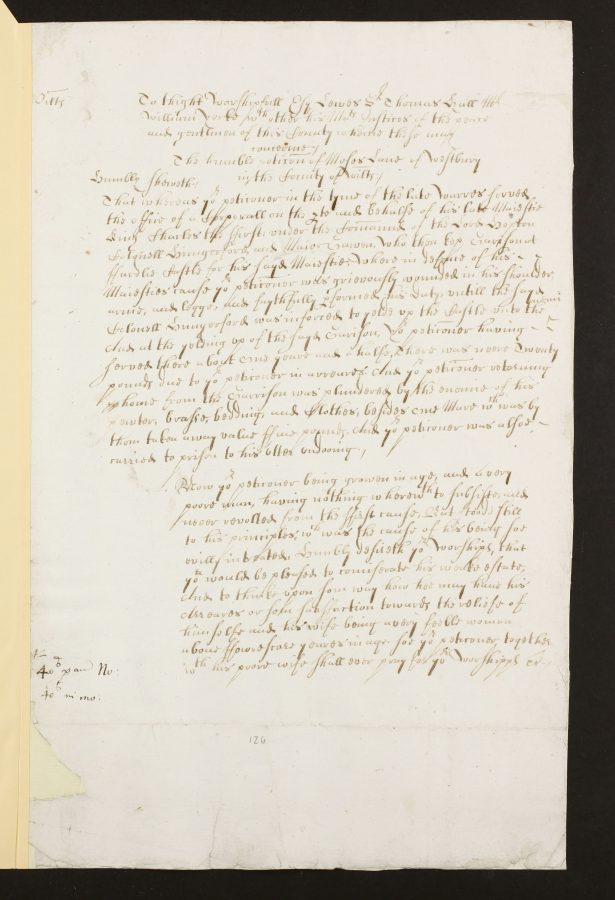 Wilts
To thight worshipfull Esq Lewes Sr Thomas Hall Mr
William Yorke wth other his Mats Justices of the peace
and gentlmen of this County whome these may
concerne;
The humble peticion of Moses Lane of Westbury
in the County of Wilts;
Humbly Sheweth,
That whereas yor petitioner in the tyme of the late warres served
the office of a Corporall on the pte and behalfe of his late Maiestie
King Charles the ffirst under the Comannd of the Lord Hopton
Colonell Hungerford and Maior Bowen, who then kep Garrison at
ffarlie Castle for his sayd Maiestie, where in defence of his
Maiesties cause yor petitioner was grievously wounded in his shoulder
arme, and legge, and faythfully pformed his duty untill the sayd
Colonell Hungerford was inforced to yeeld up the Castle unto the enimi
And at the yelding up of the sayd Garison, Yor peticoner having
served there about one yeare and a halfe, There was neere Twenty
pounds due to yor petitioner in arreares And yor petitioner returning
home from the Garrison was plundered by the enemie of his
pewter, brasse, bedding, and Clothes, besides one Mare wch was by
them taken away value ffive pounds, And yor peticoner was alsoe
carried to prison to his utter undooing,
Now yor petitioner being growen in age, and a very
poore man, having nothing wherewth to subsiste, and
never revolted from the ffirst cause, But stood still
to his principles, wch was the cause of his being soe
evilly intreated, Humbly desireth yor Worships, that
you would be pleased to comiserate his weake estate,
And to thinke upon som way how hee may have his
Arreares or som satisfaction towards the reliefe of
himselfe and his wife being a very feeble woman
above ffowrescore yeares in age. soe yor peticoner, together
wth his poore wife shall ever pray for yor Worshipps &c
40s p an No:
40s in mo:
126